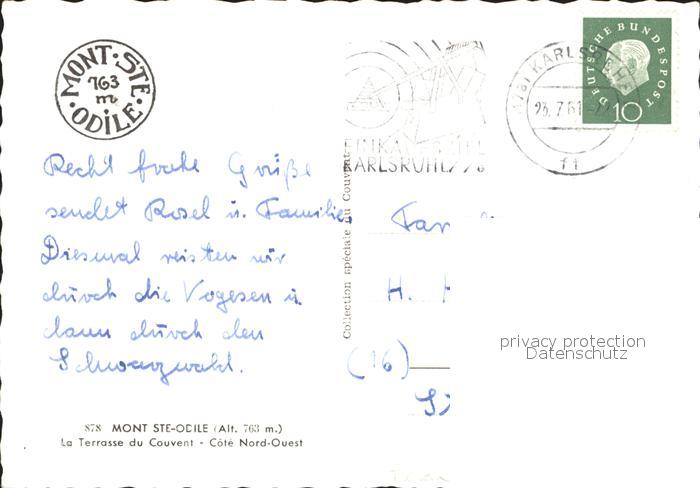 MONT·STE·ODILE·
763
m
Recht frohe Grüße
sendet Rosel u. Familie
Diesmal reisten wir
durch die Vogesen u.
dann durch den
Schwarzwald.
878 MONT STE-ODILE (Alt. 763 m.)
La Terrasse du Couvent - Côté Nord-Ouest
Collection spéciale du Couvent
KARLSRUHE
DEUTSCHE BUNDESPOST
10
Fam
H.
(16)
privacy protection
Datenschutz